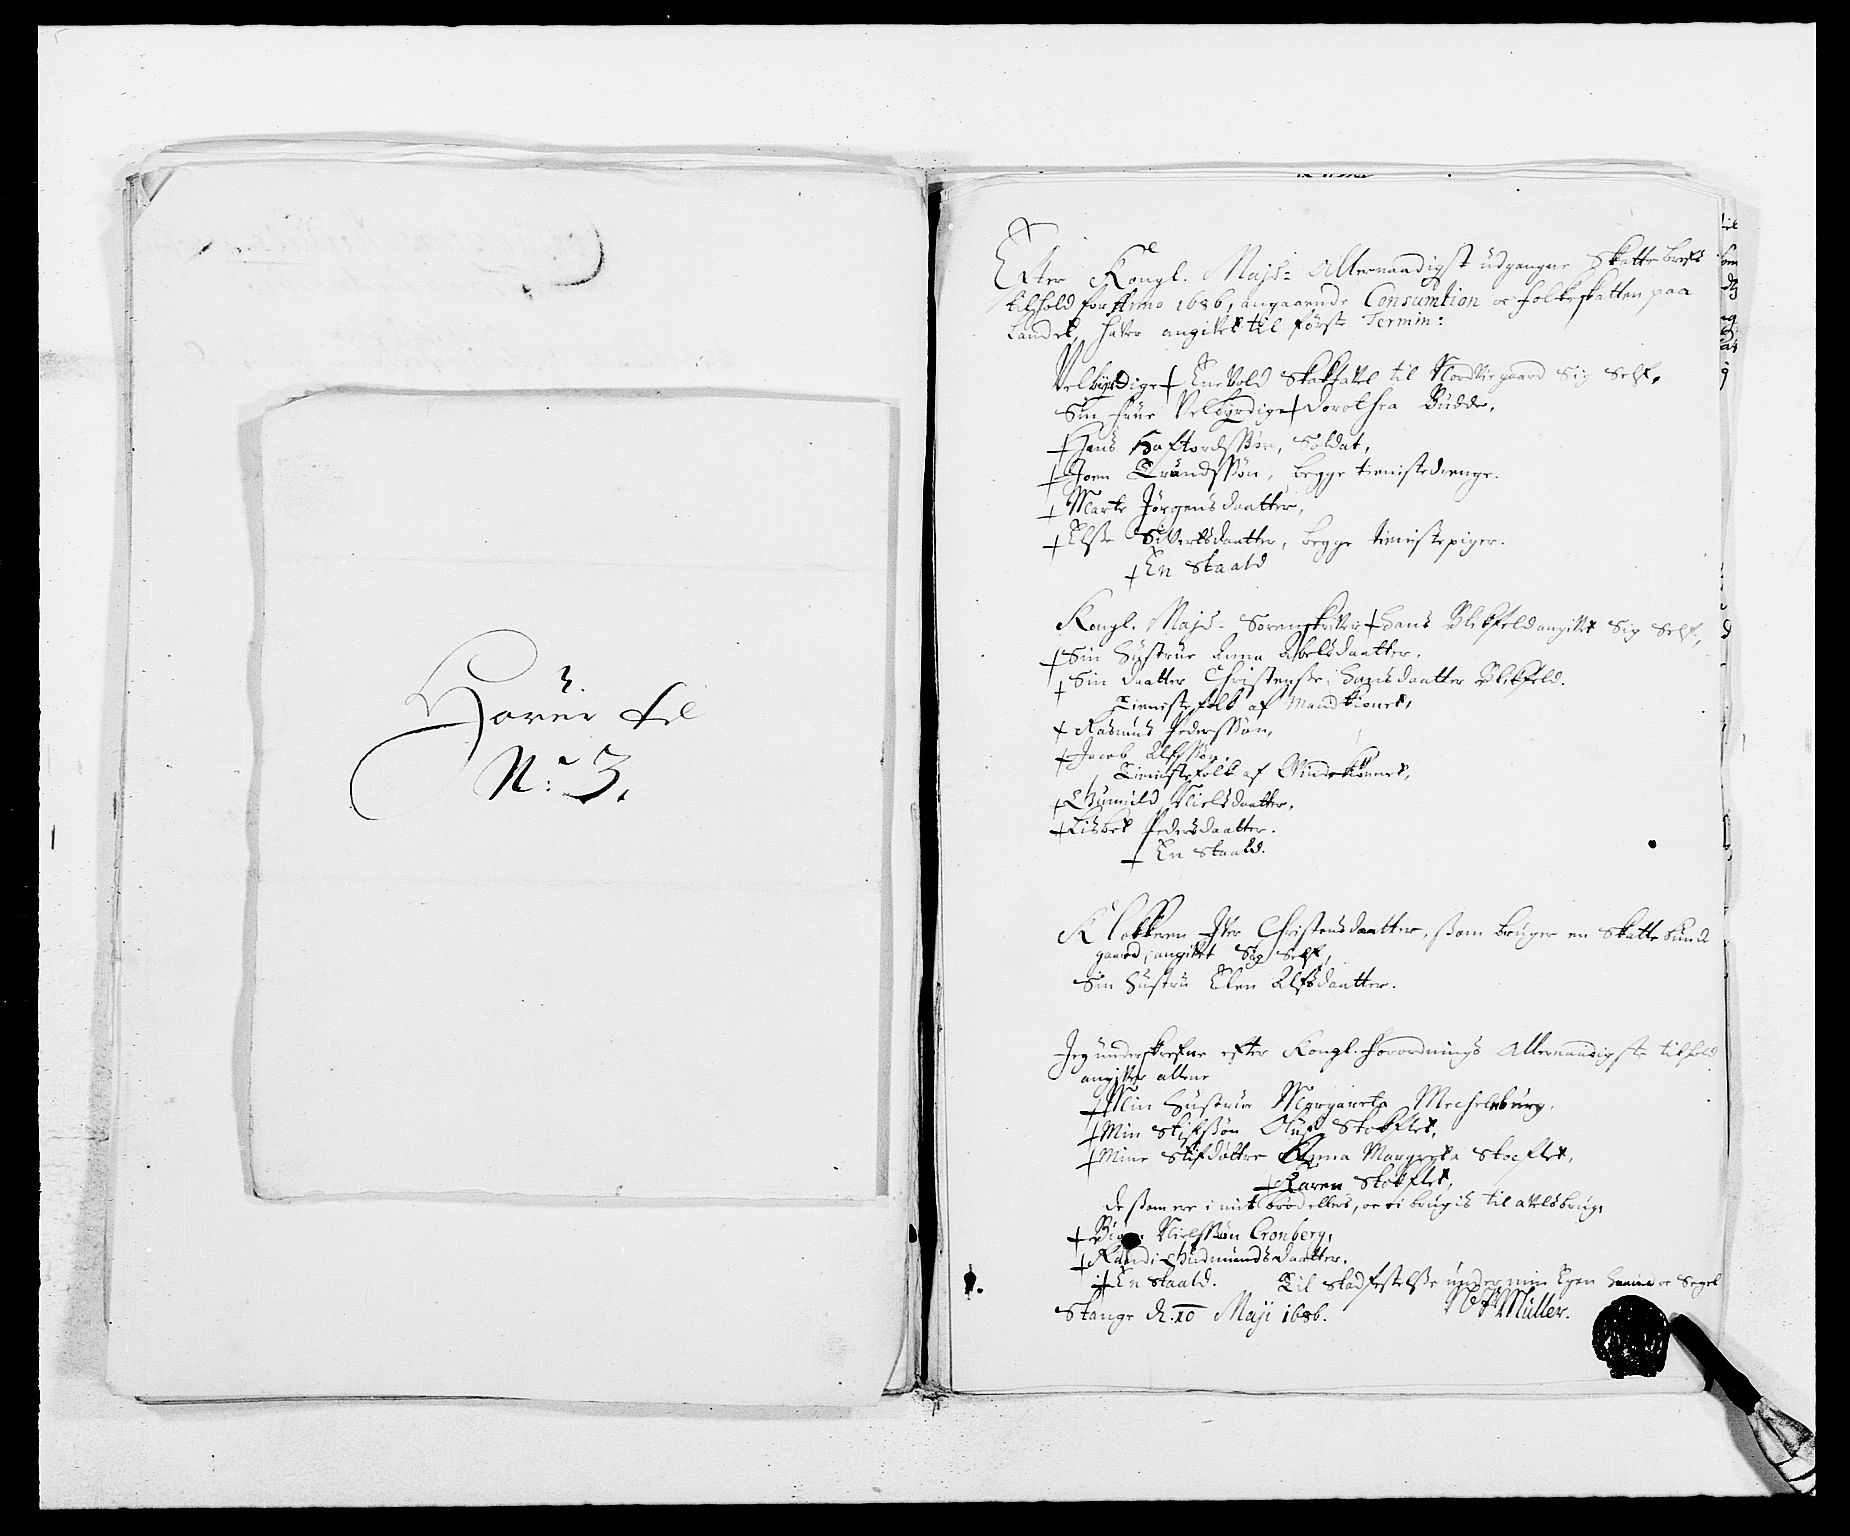 Hører til
No 3.
Efter Kongl. Majs: Allernaadigst udgangne Skatte brefs
tilhold for Anno 1686, angaaende Consumtion oc folkeskatten paa
Landet, hafver angifvet til første Termin:
Velbyrdige + Enevold Stakhavel til Nordvie gaard Sig Self,
Sin frue Velbyrdige + Dorothea Budde,
+ Hans Haftordssøn, Soldat,
+ Joen Trundssøn, begge tienistedrenge.
+ Marte Jørgensdaatter,
+ Else Sivertsdaatter, begge tienistepiger.
+ En Staald
Kongl. Majs: Sorenskriffver + Hans Blikfeld angifvet Sig Self,
+ Sin Hustrue Anna Abelsdaatter,
+ Sin daatter Christense Hansdaatter Blikfeld.
Tienistefolk af Mandkionet,
+ Rasmus Pederssøn,
+ Jacob Olssøn,
Tienistefolk af Qvindekionnet,
+ Gunnild Nielsdaatter,
+ Lisbet Pedersdaatter.
+ En Staald.
Klokkeren Christensdaatter, som bruger en Skatte bunde
gaard, angifvet Sig Self,
Sin Hustru Elen Olfsdaatter.
Jeg underskrefne efter Kongl. forordnings Allernaadigste tilhold
angifver allene
+ Min Hustrue Margareta Mechelnburg,
+ Min Stifsøn Oluf Stokflet,
+ Mine Stifdøttre Anna Margreta Stocflet,
+ Karen Stokflet,
de som ere i mit brød ellers, oc ei brugis til avelsbrug,
+ Nielssøn Cronberg,
+ Randi Gudmundsdaatter,
+ En Staald. Til Stadfestelse under min Egen Haand oc Segel
Stange d. 10 Maji 1686. Müller.